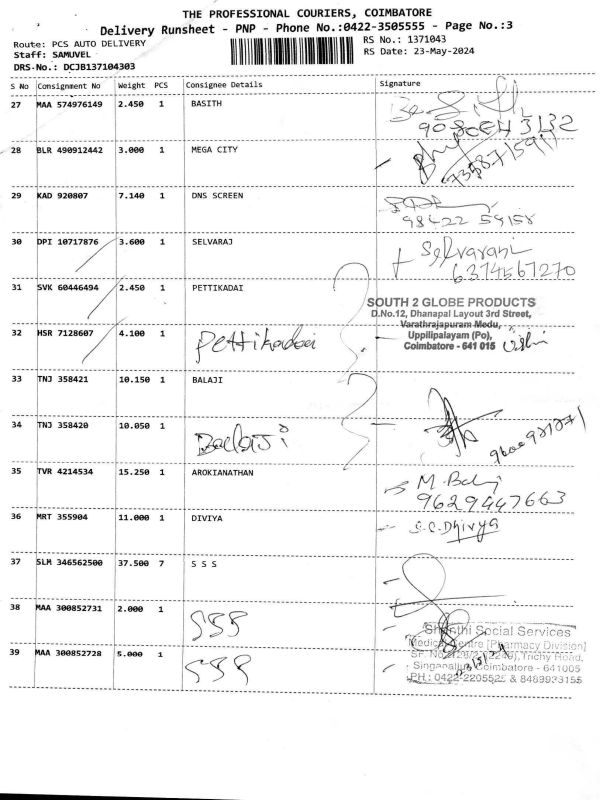 THE PROFESSIONAL COURIERS, COIMBATORE
Delivery Runsheet - PNP - Phone No.:0422-3505555 - Page No.:3
Route: PCS AUTO DELIVERY
RS No.: 1371043
Staff: SAMUVEL
RS Date: 23-May-2024
DRS-No.: DCJB137104303
S No Consignment No Weight PCS Consignee Details Signature
27 MAA 574976149 2.450 1 BASITH
28 BLR 490912442 3.000 1 MEGA CITY
29 KAD 920807 7.140 1 DNS SCREEN
98422 59158
30 DPI 10717876 3.600 1 SELVARAJ
Selvarani
6374567270
31 SVK 60446494 2.450 1 PETTIKADAI
SOUTH 2 GLOBE PRODUCTS
D.No.12, Dhanapal Layout 3rd Street,
Varathrajapuram Medu,
Uppilipalayam (Po),
Coimbatore - 641 015
32 HSR 7128607 4.100 1 Pettikadai
33 TNJ 358421 10.150 1 BALAJI
34 TNJ 358420 10.050 1 Balaji
35 TVR 4214534 15.250 1 AROKIANATHAN
M. Balaj
9629447663
36 MRT 355904 11.000 1 DIVIYA
S.C. Dhivya
37 SLM 346562500 37.500 7 S S S
38 MAA 300852731 2.000 1 SSS
39 MAA 300852728 5.000 1 SSS
Shanthi Social Services
Medical Centre [Pharmacy Division]
Trichy Road,
Singanallur, Coimbatore - 641005
PH : 0422-2205522 & 8489933155